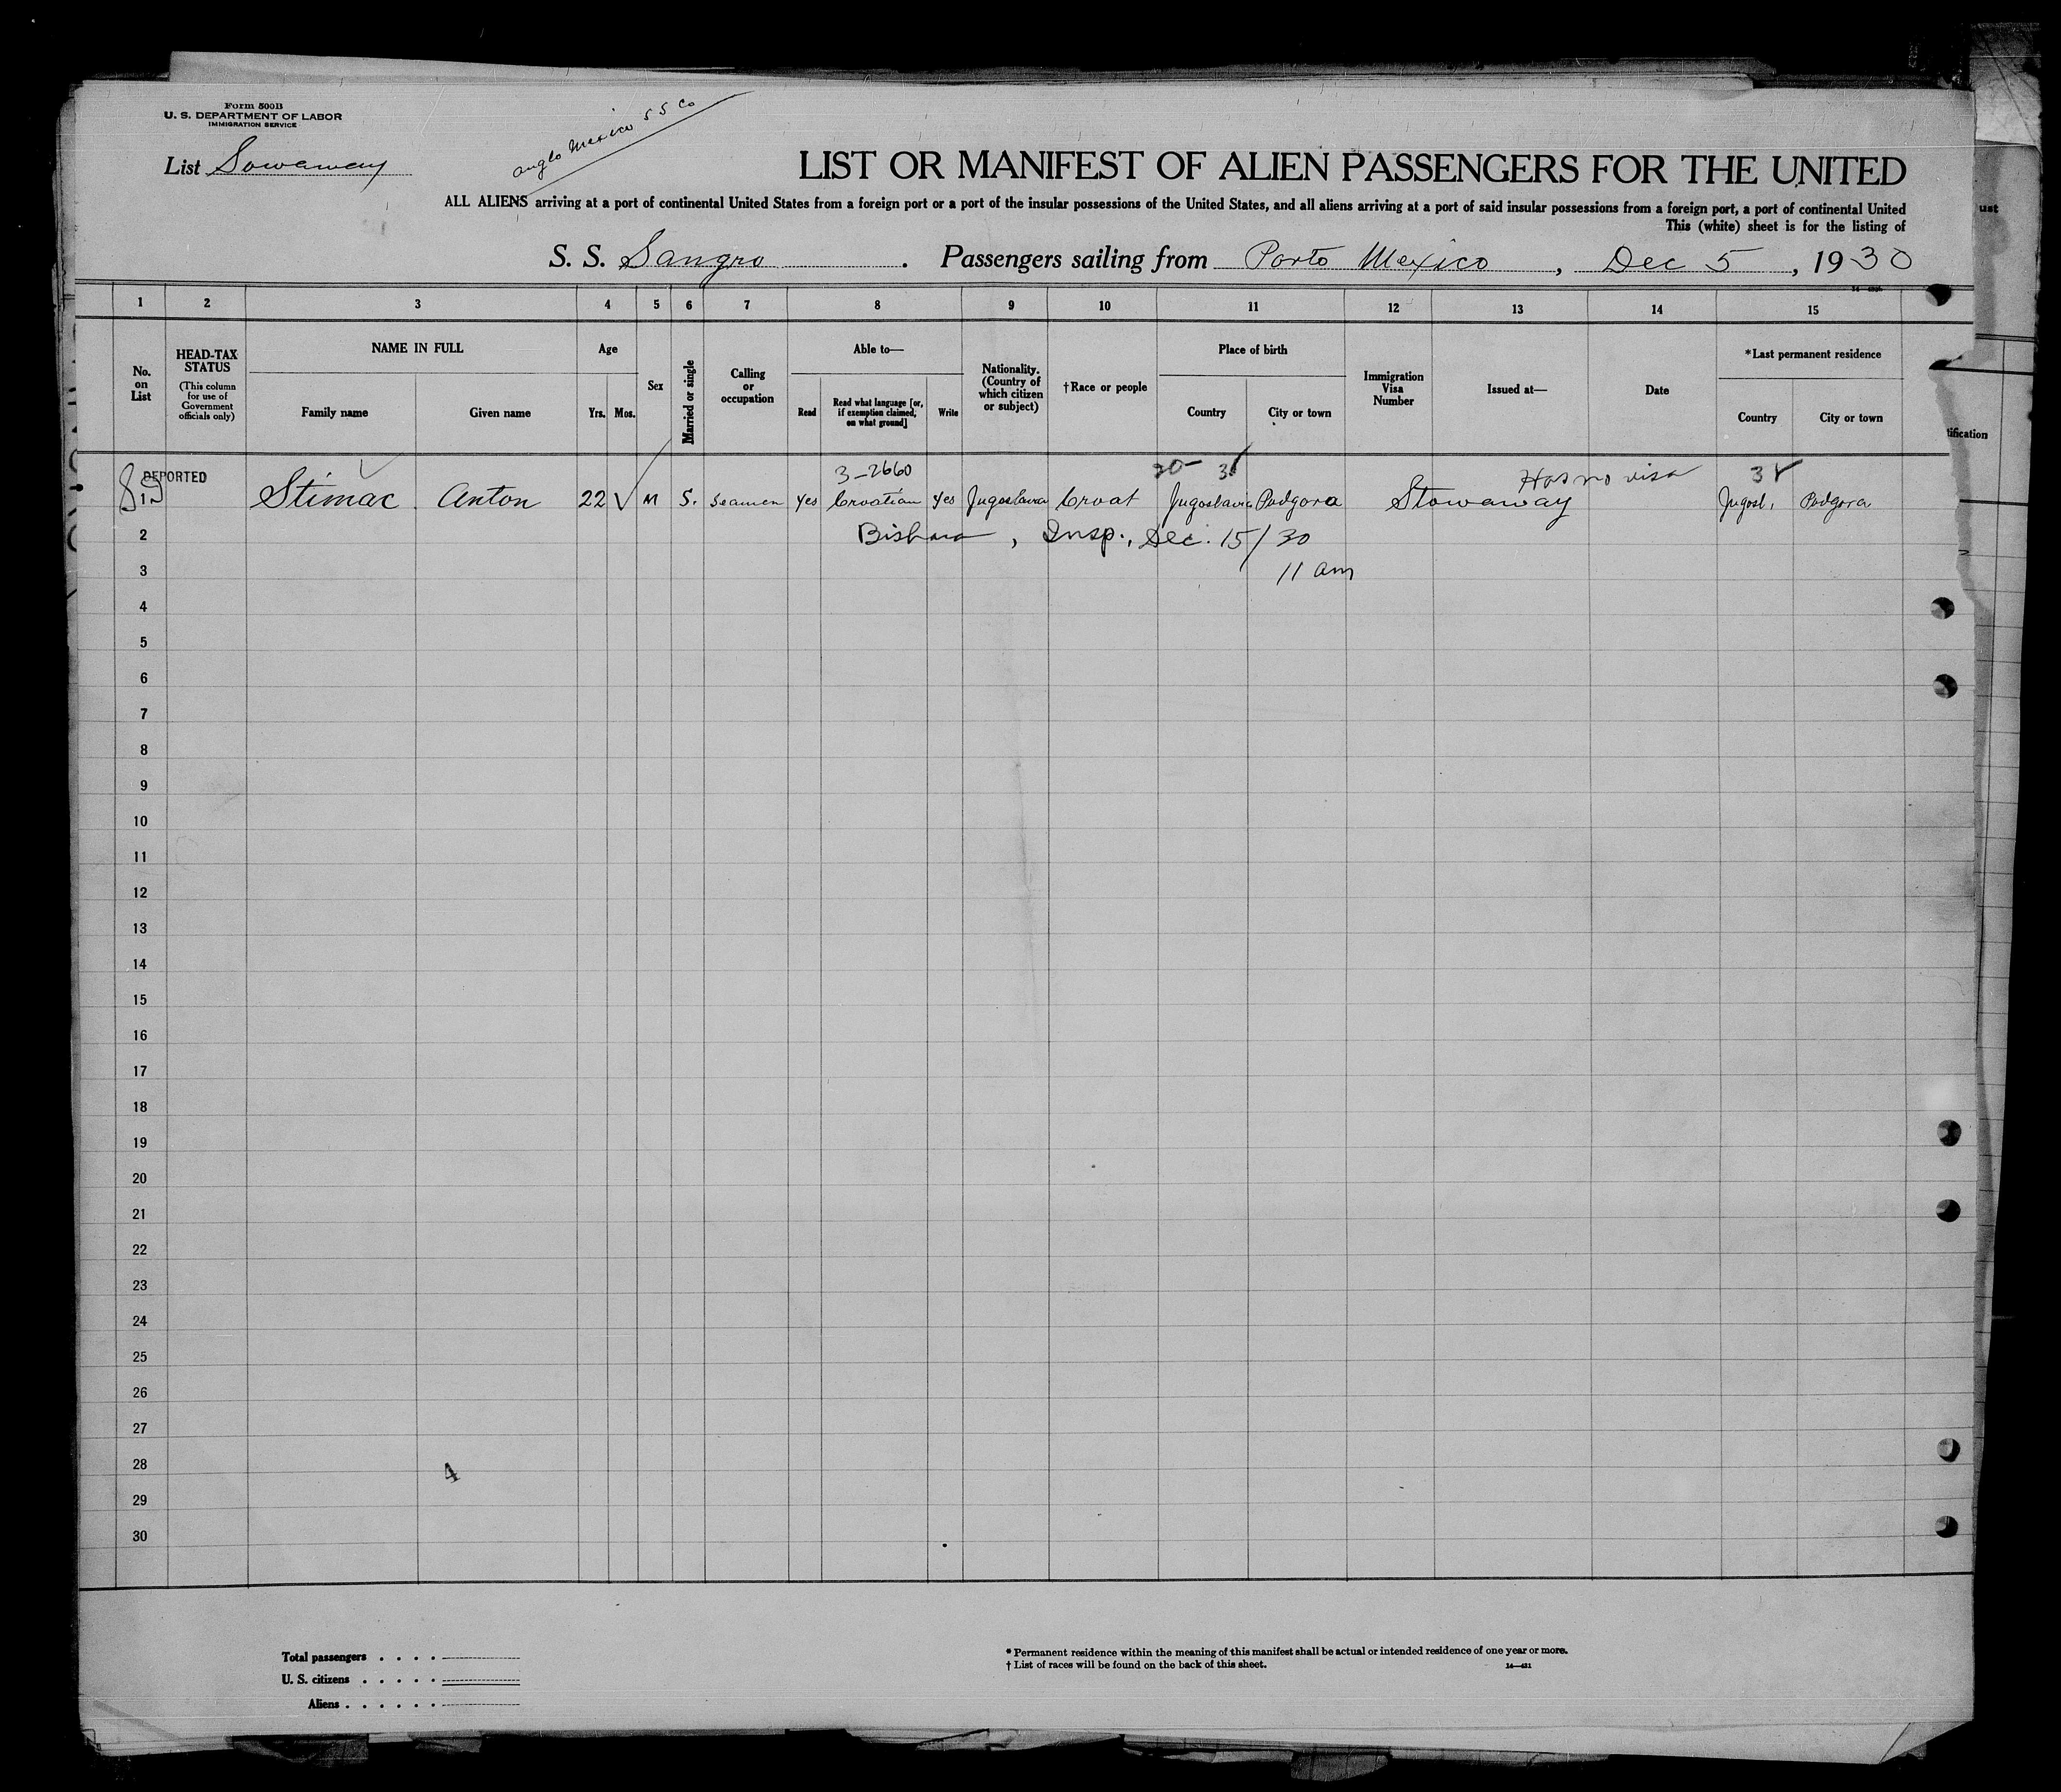 Form 500B
U. S. DEPARTMENT OF LABOR
IMMIGRATION SERVICE
List Sowaway
anglo Mexico S S Co
LIST OR MANIFEST OF ALIEN PASSENGERS FOR THE UNITED
ALL ALIENS arriving at a port of continental United States from a foreign port or a port of the insular possessions of the United States, and all aliens arriving at a port of said insular possessions from a foreign port, a port of continental United
This (white) sheet is for the listing of
S. S. Sangro . Passengers sailing from Porto Mexico , Dec 5 , 1930
1 2 3 4 5 6 7 8 9 10 11 12 13 14 15
No. on List
HEAD-TAX STATUS
(This column for use of Government officials only)
NAME IN FULL
Family name
Given name
Age
Yrs. Mos.
Sex
Married or single
Calling or occupation
Able to—
Read
Read what language [or, if exemption claimed, on what ground]
Write
Nationality. (Country of which citizen or subject)
†Race or people
Place of birth
Country
City or town
Immigration Visa Number
Issued at—
Date
*Last permanent residence
Country
City or town
ust
tification
3-2660
20- 38
Has no visa
38
DEPORTED
1 Stimac Anton 22 M S. Seamen Yes Croatian Yes Jugoslavia Croat Jugoslavia Podgora Stowaway Jugosl. Podgora
2 Insp., Dec. 15/30
3 11 am
4
5
6
7
8
9
10
11
12
13
14
15
16
17
18
19
20
21
22
23
24
25
26
27
28 4
29
30
Total passengers . . . .
U. S. citizens . . . . .
Aliens . . . . . .
* Permanent residence within the meaning of this manifest shall be actual or intended residence of one year or more.
† List of races will be found on the back of this sheet.
14—421